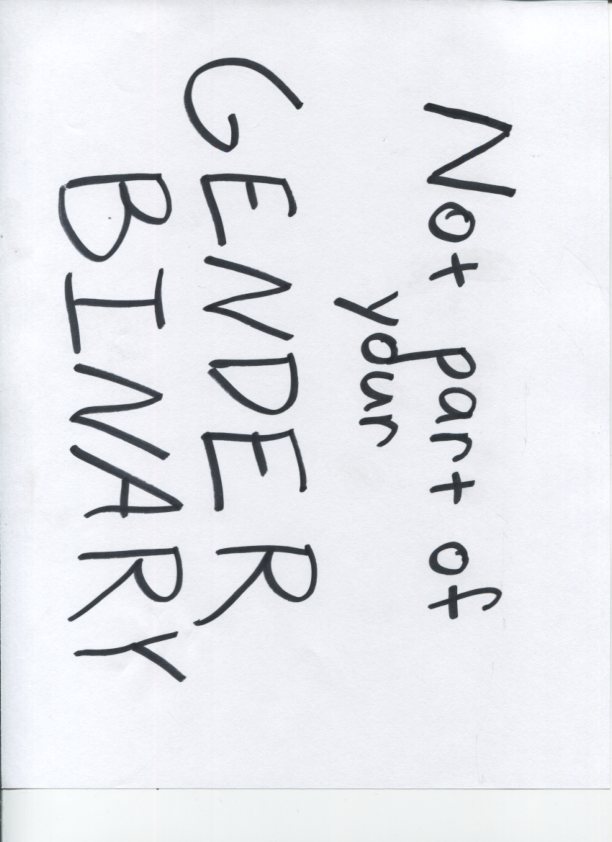 Not part of
your
GENDER
BINARY